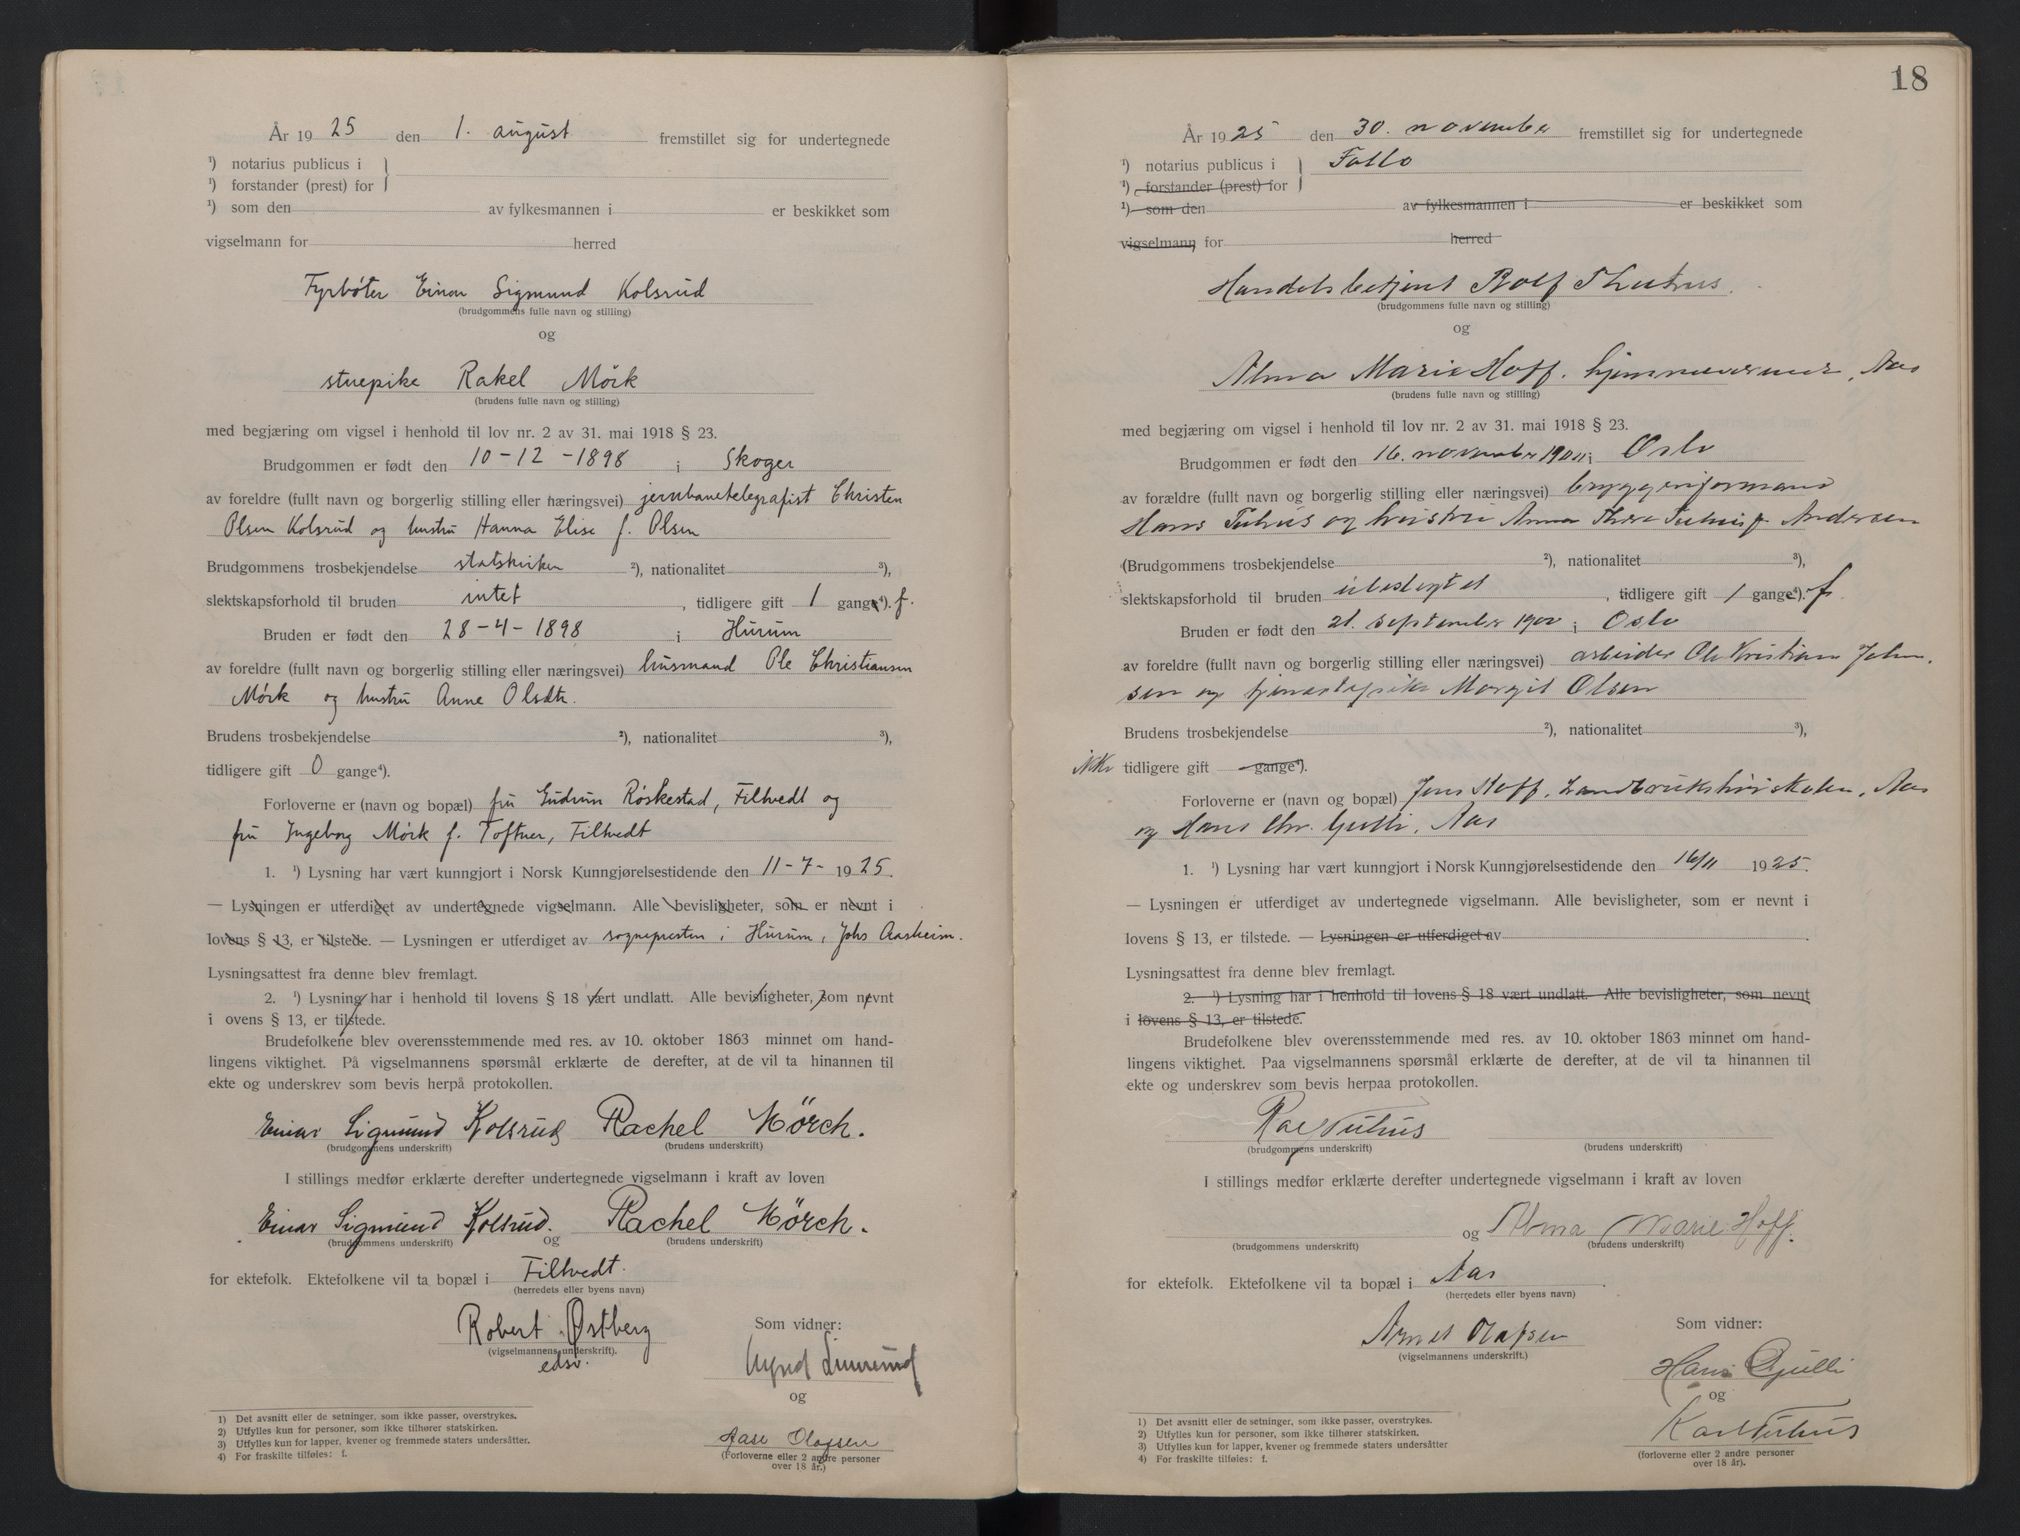 År 1925 den 1. august fremstillet sig for undertegnede
¹) notarius publicus i
¹) forstander (prest) for
¹) som den av fylkesmannen i er beskikket som
vigselmann for herred
Fyrbøter Einar Sigmund Kolsrud
(brudgommens fulle navn og stilling)
og
stuepike Rakel Mörk
(brudens fulle navn og stilling)
med begjæring om vigsel i henhold til lov nr. 2 av 31. mai 1918 § 23.
Brudgommen er født den 10-12-1898 i Skoger
av foreldre (fullt navn og borgerlig stilling eller næringsvei) jernbanetelegrafist Christen
Olsen Kolsrud og hustru Hanna Elise f. Olsen
Brudgommens trosbekjendelse statskirken ²), nationalitet ³),
slektskapsforhold til bruden intet, tidligere gift 1 gange⁴). f.
Bruden er født den 28-4-1898 i Hurum
av foreldre (fullt navn og borgerlig stilling eller næringsvei) husmand Ole Christiansen
Mörk og hustru Anne Olsdtr.
Brudens trosbekjendelse ²), nationalitet ³),
tidligere gift 0 gange⁴).
Forloverne er (navn og bopæl) fru Gudrun Röskestad, Filtvedt og
fru Ingeborg Mörk f. Toftner, Filtvedt
1. ¹) Lysning har vært kunngjort i Norsk Kunngjørelsestidende den 11-7-1925.
— Lysningen er utferdiget av undertegnede vigselmann. Alle bevisligheter, som er nevnt i
lovens § 13, er tilstede. — Lysningen er utferdiget av sognepresten i Hurum, Johs Aasheim.
Lysningsattest fra denne blev fremlagt.
2. ¹) Lysning har i henhold til lovens § 18 vært undlatt. Alle bevisligheter, som nevnt
i ovens § 13, er tilstede.
Brudefolkene blev overensstemmende med res. av 10. oktober 1863 minnet om hand-
lingens viktighet. På vigselmannens spørsmål erklærte de derefter, at de vil ta hinannen til
ekte og underskrev som bevis herpå protokollen.
Einar Sigmund Kolsrud Rachel Mörch.
(brudgommens underskrift) (brudens underskrift)
I stillings medfør erklærte derefter undertegnede vigselmann i kraft av loven
Einar Sigmund Kolsrud. og Rachel Mörch.
(brudgommens underskrift) (brudens underskrift)
for ektefolk. Ektefolkene vil ta bopæl i Filtvedt.
(herredets eller byens navn)
Robert Østberg
(vigselmannens underskrift).
edsv.
Som vidner:
og
Aase Olafsen
(Forloverne eller 2 andre personer
over 18 år.)
1) Det avsnitt eller de setninger, som ikke passer, overstrykes.
2) Utfylles kun for personer, som ikke tilhører statskirken.
3) Utfylles kun for lapper, kvener og fremmede staters undersåtter.
4) For fraskilte tilføies: f.
18
År 1925 den 30. november fremstillet sig for undertegnede
¹) notarius publicus i Follo
¹) forstander (prest) for
¹) som den av fylkesmannen i er beskikket som
vigselmann for herred
Handelsbetjent Rolf Thuhus.
(brudgommens fulle navn og stilling)
og
Alma Marie Hoff, hjemmeværende, Aas
(brudens fulle navn og stilling)
med begjæring om vigsel i henhold til lov nr. 2 av 31. mai 1918 § 23.
Brudgommen er født den 16. november i Oslo
av forældre (fullt navn og borgerlig stilling eller næringsvei) bryggeriformand
Hans Tuhus og hustru Anna Thea Tuhus f. Andersen
(Brudgommens trosbekjendelse ²), nationalitet ³),
slektskapsforhold til bruden ubeslegtet, tidligere gift 1 gange⁴). f.
Bruden er født den 21. september 1900 i Oslo
av foreldre (fullt navn og borgerlig stilling eller næringsvei) arbeider Ole Kristian John
sen og tjenestepike Margit Olsen
Brudens trosbekjendelse ²), nationalitet ³),
ikke tidligere gift gange⁴).
Forloverne er (navn og bopæl) Jens Hoff, Landbrukshøiskolen, Aas
og Hans Chr. Gulli, Aas
1. ¹) Lysning har vært kunngjort i Norsk Kunngjørelsestidende den 16/11 1925.
— Lysningen er utferdiget av undertegnede vigselmann. Alle bevisligheter, som er nevnt i
lovens § 13, er tilstede. — Lysningen er utferdiget av .
Lysningsattest fra denne blev fremlagt.
2. ¹) Lysning har i henhold til lovens § 18 vært undlatt. Alle bevisligheter, som nevnt
i lovens § 13, er tilstede.
Brudefolkene blev overensstemmende med res. av 10. oktober 1863 minnet om hand-
lingens viktighet. Paa vigselmannens spørsmål erklærte de derefter, at de vil ta hinannen til
ekte og underskrev som bevis herpaa protokollen.
Rolf Tuhus
(brudgommens underskrift) (brudens underskrift)
I stillings medfør erklærte derefter undertegnede vigselmann i kraft av loven
og Alma Marie Hoff.
(brudgommens underskrift) (brudens underskrift)
for ektefolk. Ektefolkene vil ta bopæl i Aas.
(herredets eller byens navn)
Olafsen
(vigselmannens underskrift.)
Som vidner:
Hans Gulli
og
Karl Tuhus
(forloverne eller 2 andre personer
over 18 år).
1) Det avsnitt eller de setninger, som ikke passer, overstrykes.
2) Utfylles kun for personer, som ikke tilhører statskirken.
3) Utfylles kun for lapper, kvener og fremmede staters undersåtter
4) For fraskilte tilføies: f.